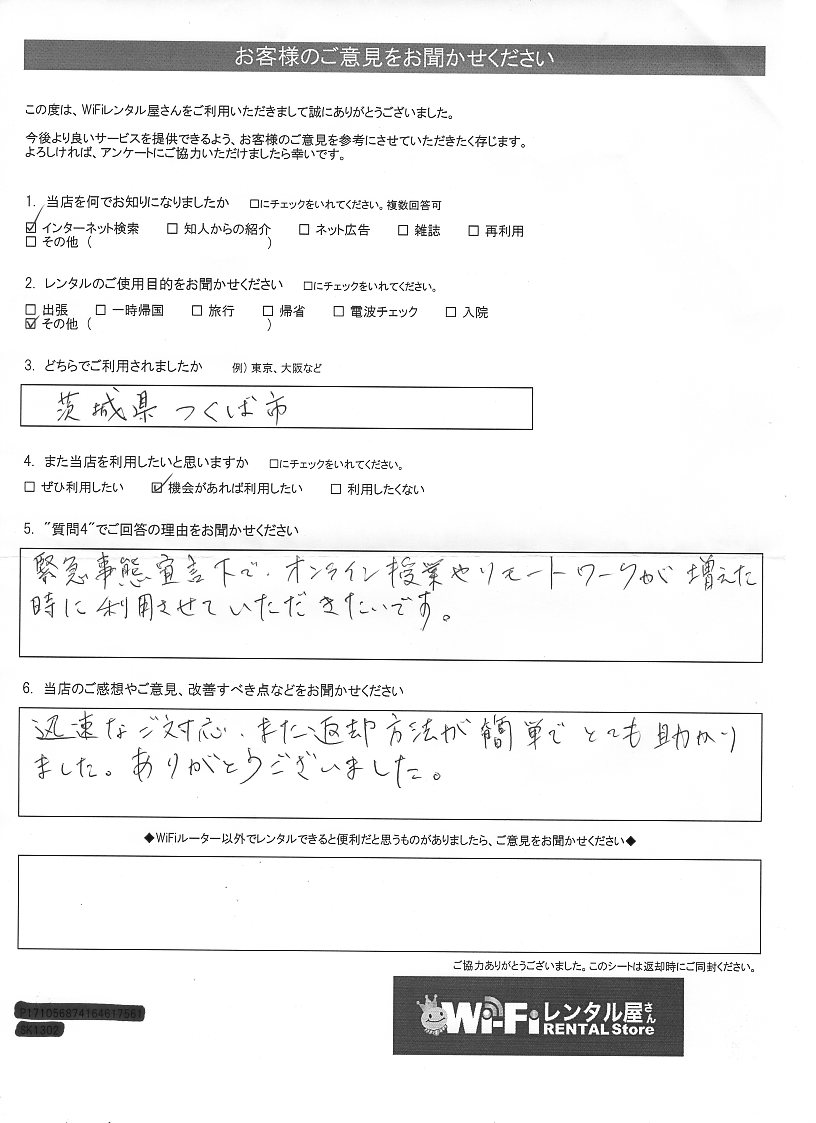 お客様のご意見をお聞かせください
この度は、WiFiレンタル屋さんをご利用いただきまして誠にありがとうございました。
今後より良いサービスを提供できるよう、お客様のご意見を参考にさせていただきたく存じます。
よろしければ、アンケートにご協力いただけましたら幸いです。
1. 当店を何でお知りになりましたか □にチェックをいれてください。複数回答可
☑ インターネット検索 □ 知人からの紹介 □ ネット広告 □ 雑誌 □ 再利用
□ その他 ( )
2. レンタルのご使用目的をお聞かせください □にチェックをいれてください。
□ 出張 □ 一時帰国 □ 旅行 □ 帰省 □ 電波チェック □ 入院
☑ その他 ( )
3. どちらでご利用されましたか 例) 東京、大阪など
茨城県つくば市
4. また当店を利用したいと思いますか □にチェックをいれてください。
□ ぜひ利用したい ☑ 機会があれば利用したい □ 利用したくない
5. "質問4"でご回答の理由をお聞かせください
緊急事態宣言下で、オンライン授業やリモートワークが増えた
時に利用させていただきたいです。
6. 当店のご感想やご意見、改善すべき点などをお聞かせください
迅速なご対応、また返却方法が簡単でとても助かり
ました。ありがとうございました。
◆WiFiルーター以外でレンタルできると便利だと思うものがありましたら、ご意見をお聞かせください◆
ご協力ありがとうございました。このシートは返却時にご同封ください。
P171056874164617561
SK1302
Wi-Fiレンタル屋さん
RENTAL Store